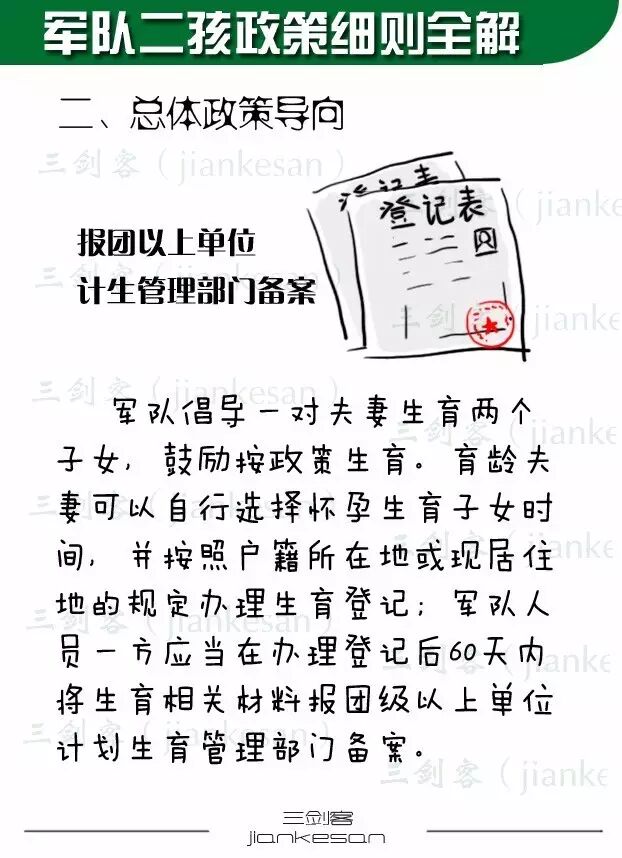 军队二孩政策细则全解
二、总体政策导向
三剑客（jiankesan）
登记表
登记表
(jianke
报团以上单位
计生管理部门备案
三剑客（jiankesan）
三剑客（jianke
三剑客（jiankesan）
军队倡导一对夫妻生育两个
三剑客（jianke
子女，鼓励按政策生育。育龄夫
妻可以自行选择怀孕生育子女时
三剑客（jiankesan）
三剑客（jianke
间，并按照户籍所在地或现居住
地的规定办理生育登记；军队人
三剑客（jiankesan）
员一方应当在办理登记后60天内
三剑客（jianke
将生育相关材料报团级以上单位
三剑客（jiankesan）
计划生育管理部门备案。
三剑客（jianke
三剑客
jiankesan